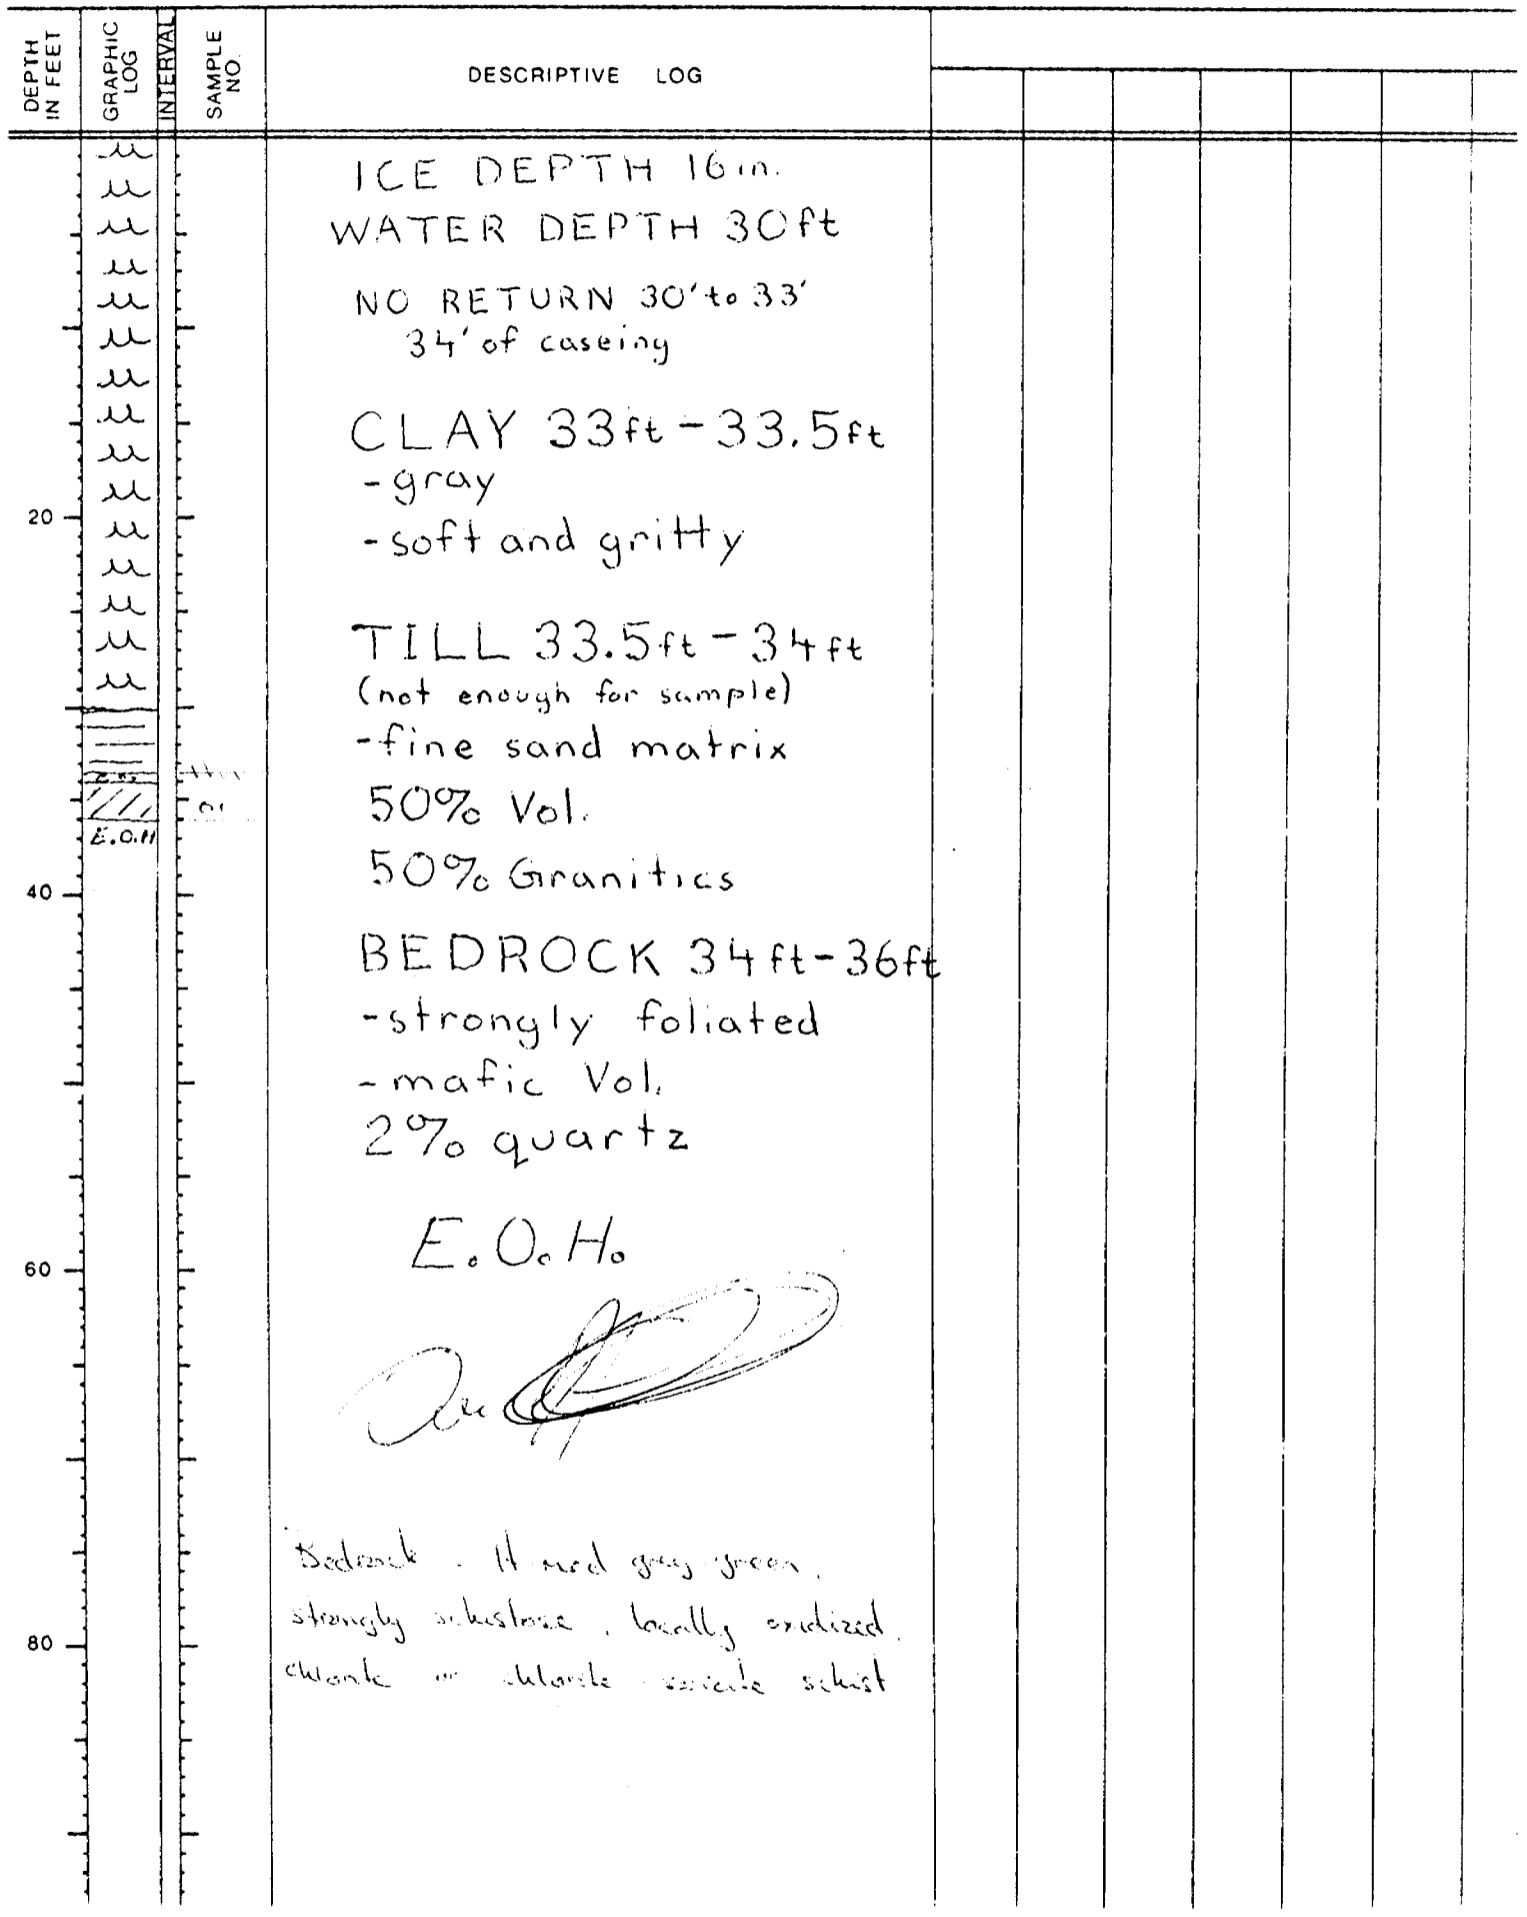 DEPTH IN FEET
GRAPHIC LOG
INTERVAL
SAMPLE NO.
DESCRIPTIVE LOG
ICE DEPTH 16 in.
WATER DEPTH 30ft
NO RETURN 30' to 33'
34' of caseing
CLAY 33ft - 33.5ft
- gray
- soft and gritty
20
TILL 33.5ft - 34ft
(not enough for sample)
- fine sand matrix
50% Vol.
E.O.H
50% Granitics
40
BEDROCK 34ft - 36ft
- strongly foliated
- mafic Vol.
2% quartz
E.O.H.
60
Bedrock - lt med grey green,
strongly schistose, locally oxidized,
80
chlorite or chlorite sericite schist